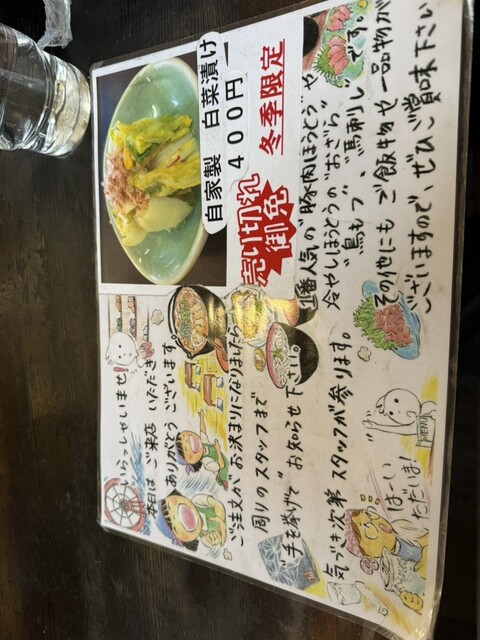 自家製 白菜漬け
400円
冬季限定
売り切れ
御免
いらっしゃいませ!
本日は ご来店 いただき
ありがとう ございます
ご注文が お決まりになりましたら
周りの スタッフまで
"手を挙げて" お知らせ 下さい。
気づき次第 スタッフが 参ります。
はーい
ただいま!
MENU
1番人気の"豚肉ほうとう"や
冷やしほうとうの"おざら"
"鳥もつ"、"馬刺し"です。
その他にも ご飯物や 一品物が
ございますので、ぜひご賞味下さい